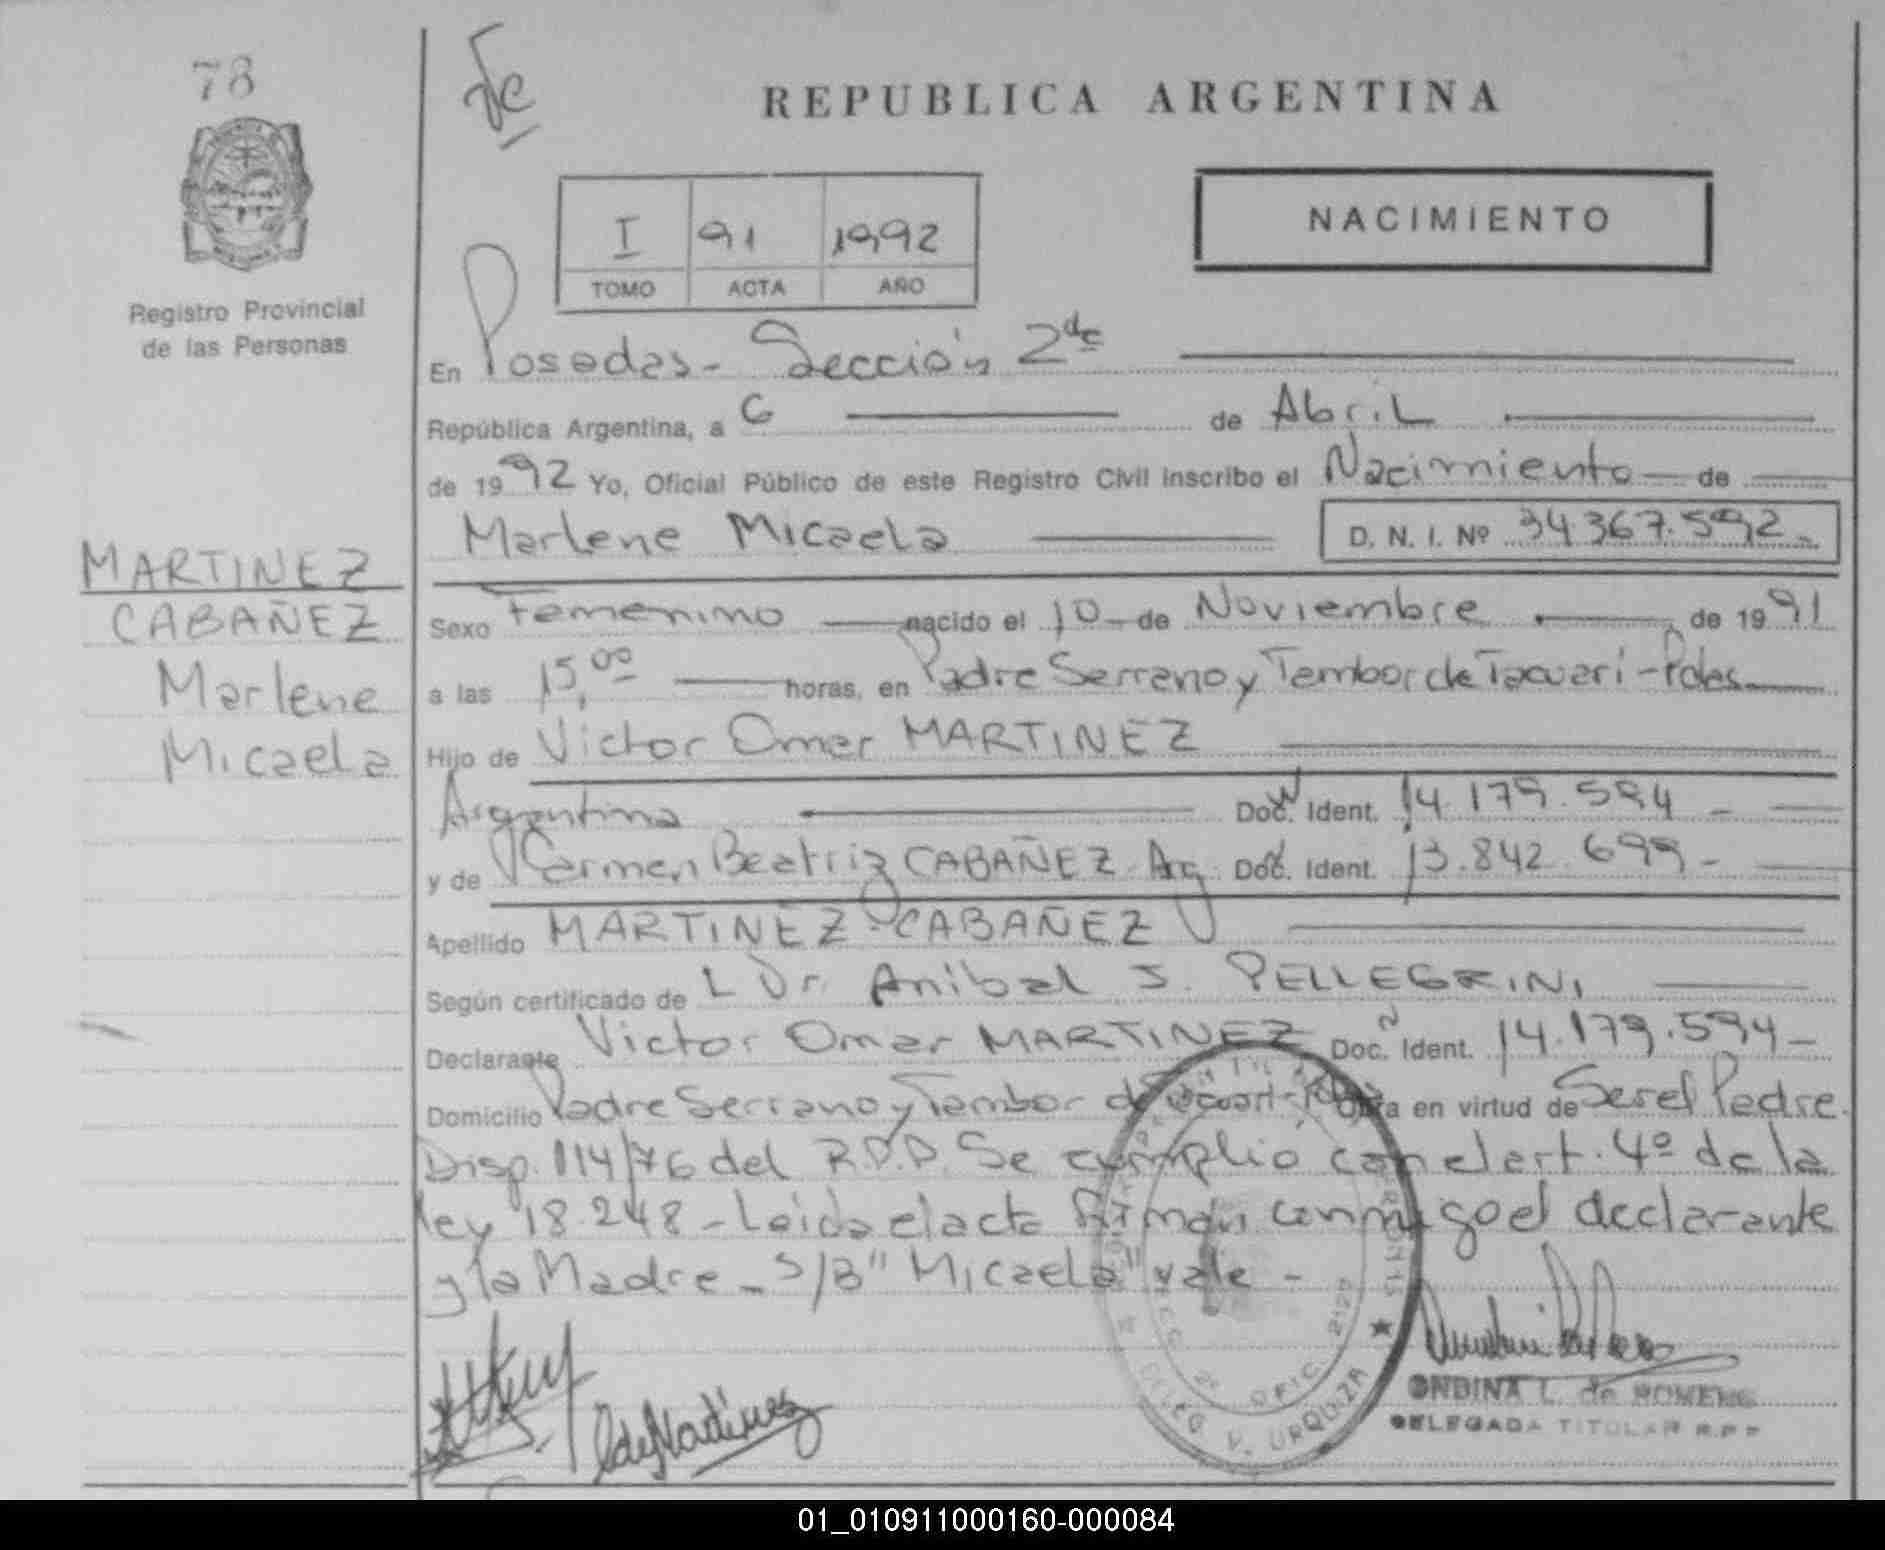 78
REPUBLICA ARGENTINA
I 91 1992
TOMO ACTA AÑO
NACIMIENTO
Registro Provincial
de las Personas
En Posadas - Sección 2da
República Argentina, a 6 de Abril
de 1992 Yo, Oficial Público de este Registro Civil inscribo el Nacimiento de
Marlene Micaela D. N. I. Nº 34367.592.-
MARTINEZ
CABAÑEZ
Marlene
Micaela
Sexo Femenino nacido el 10 de Noviembre de 1991
a las 15,00 horas, en Padre Serrano y Tambor de Tacuari - Pdas
Hijo de Victor Omar MARTINEZ
Argentina Doc. Ident. 14.179.594 -
y de Carmen Beatriz CABAÑEZ Arg. Doc. Ident. 13.842.699 -
Apellido MARTINEZ-CABAÑEZ
Según certificado de L Dr. Anibal J. PELLEGRINI
Declarante Victor Omar MARTINEZ Doc. Ident. 14.179.594 -
Domicilio Padre Serrano y Tambor de Tacuari - Pdas Obra en virtud de Ser el Padre.
Disp. 114/76 del R.P.P. Se cumplió con el art. 4º de la
ley 18.248 - Leida el acta firman conmigo el declarante
y la Madre - S/B "Micaela" vale -
OFIC. 2127
DELEG V. URQUIZA
ONDINA L. de ROMERO
DELEGADA TITULAR R.P.P
01_010911000160-000084